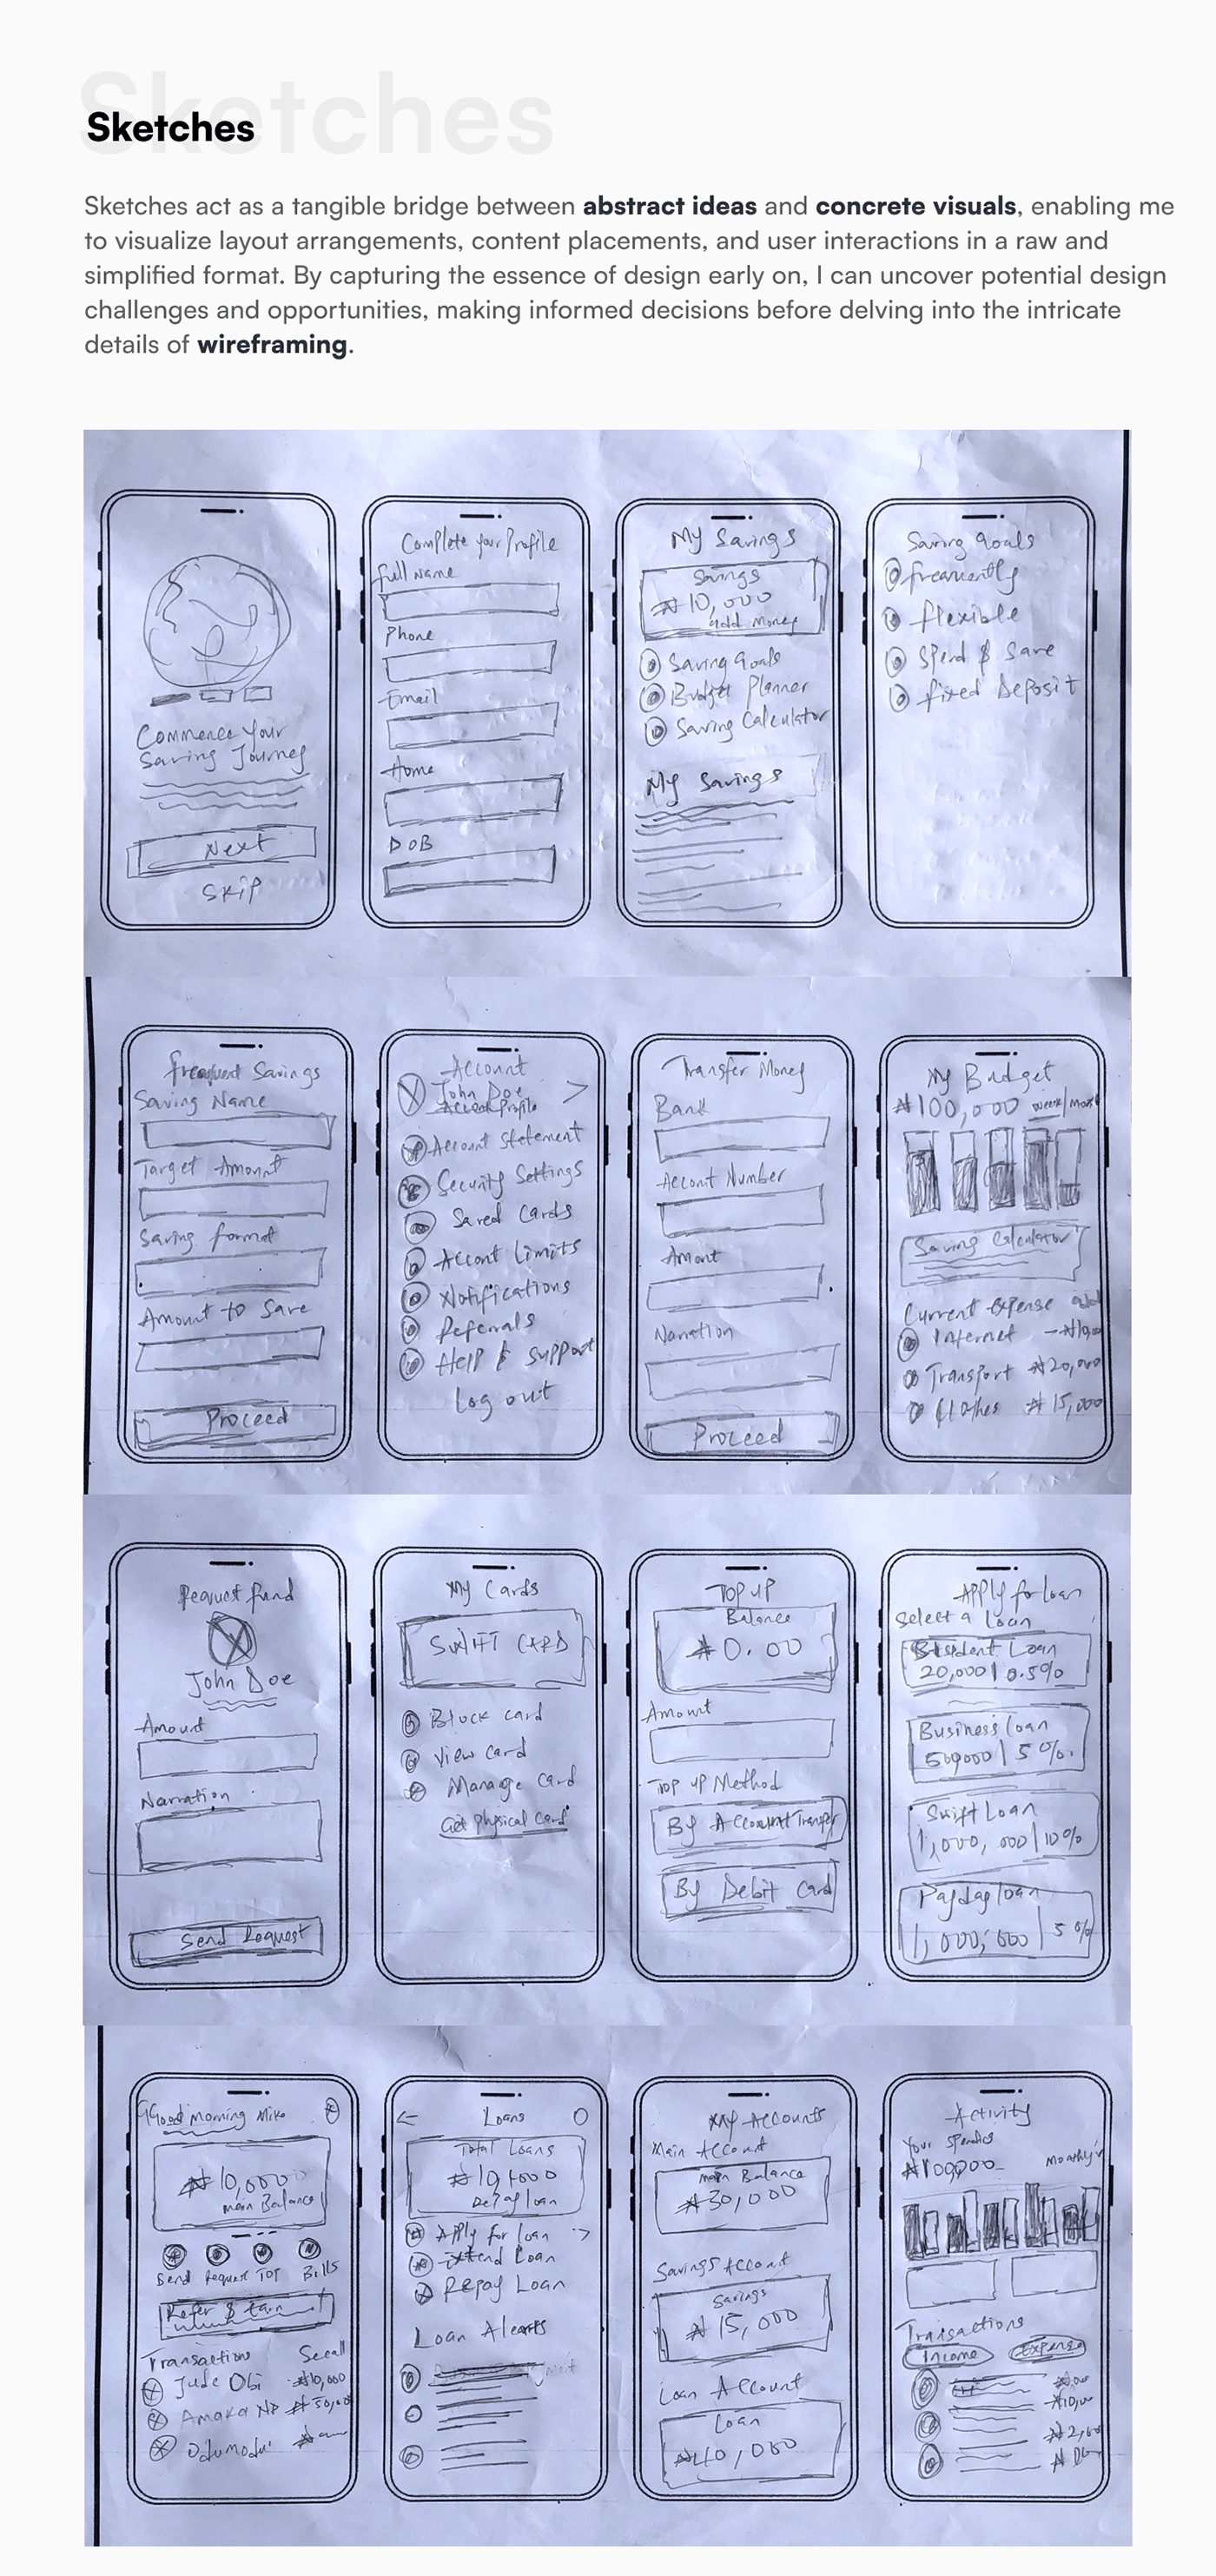 Sketches
Sketches
Sketches act as a tangible bridge between abstract ideas and concrete visuals, enabling me
to visualize layout arrangements, content placements, and user interactions in a raw and
simplified format. By capturing the essence of design early on, I can uncover potential design
challenges and opportunities, making informed decisions before delving into the intricate
details of wireframing.
Commence Your
Saving Journey
Next
Skip
Complete your Profile
Full Name
Phone
Email
Home
DOB
My Savings
Savings
₦10,000
add Money
Saving Goals
Budget Planner
Saving Calculator
My Savings
Saving Goals
frequently
flexible
Spend & Save
fixed Deposit
frequent Savings
Saving Name
Target Amount
Saving format
Amount to Save
Proceed
Account
John Doe >
Account Profile
Account Statement
Security Settings
Saved Cards
Account Limits
Notifications
Referrals
Help & Support
Log out
Transfer Money
Bank
Account Number
Amont
Narration
Proceed
My Budget
₦100,000 week/
Saving Calculator
Current Expense
Internet
Transport ₦20,000
Clothes ₦15,000
Request fund
John Doe
Amount
Narration
Send Request
My Cards
SWIFT CARD
Block card
View card
Manage Card
Get Physical Card
TOP UP
Balance
₦0.00
Amount
Top up Method
By Account Transfer
By Debit Card
Apply for Loan
Select a Loan
Loan
20,000 | 0.5%
Business loan
500000 | 5%
Swift Loan
1,000,000 | 10%
Payday loan
1,000,000 | 5%
Good morning Mike
₦10,000
main Balance
Send Request Top Bills
Refer & Earn
Transactions See all
Jude Obi ₦10,000
Amaka
Odumodu
Loans
Total Loans
loan
Apply for loan >
Extend Loan
Repay Loan
Loan Alearts
My Accounts
Main Account
main Balance
₦30,000
Savings Account
Savings
₦15,000
Loan Account
Loan
₦40,000
Activity
Your
Monthly
Transactions
Income Expense